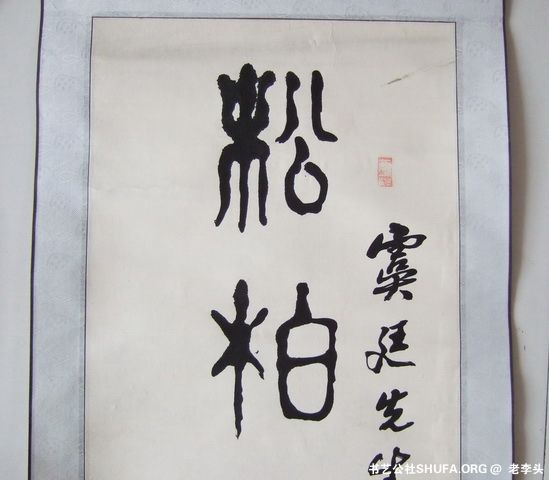 松柏
虞廷先生
书艺公社SHUFA.ORG @ 老李头